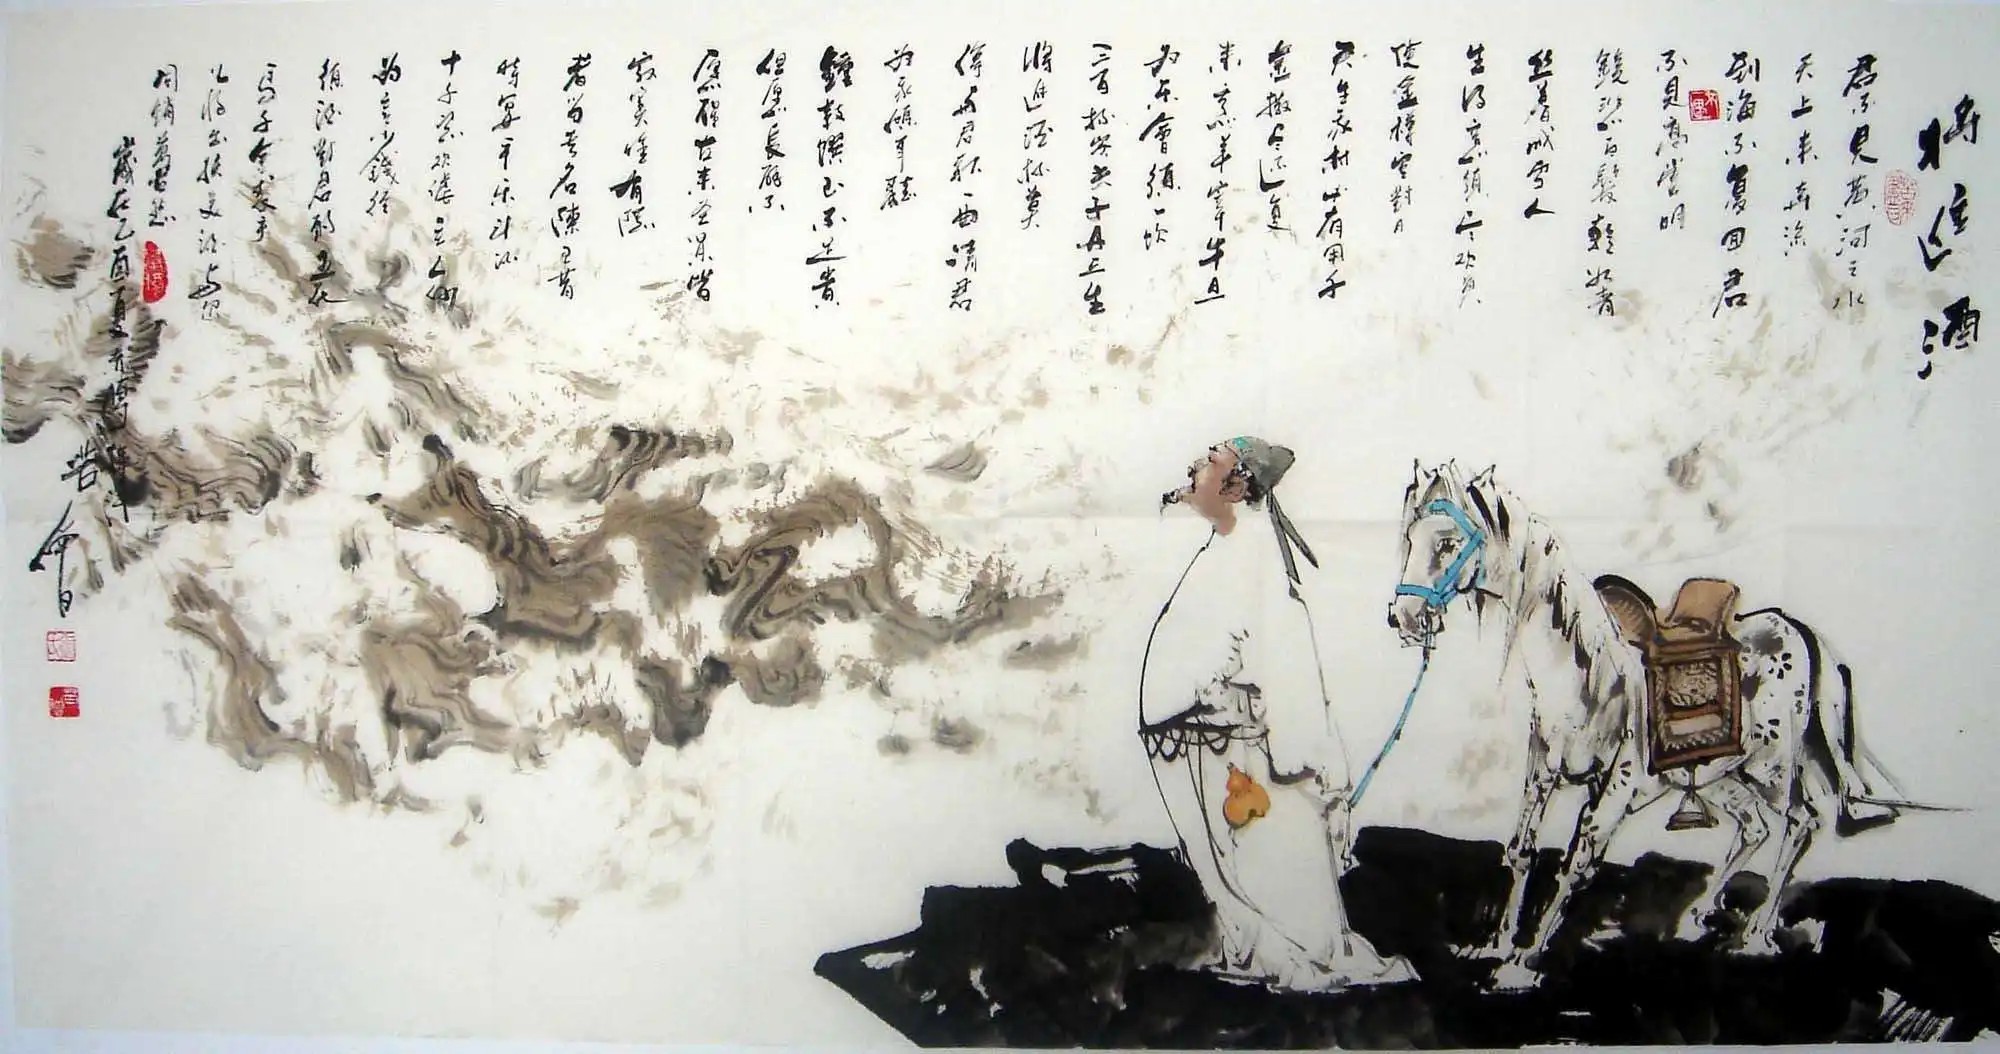 将進酒
君不見黄河之水
天上来奔流
到海不复回君
不見高堂明
鏡悲白髮朝如青
丝暮成雪人
生得意須尽欢莫
使金樽空對月
天生我材必有用千
金散尽还复
来烹羊宰牛且
为乐會須一饮
三百杯岑夫子丹丘生
将進酒杯莫
停与君歌一曲請君
为我傾耳聽
鐘鼓饌玉不足贵
但愿長醉不
愿醒古来圣贤皆
寂寞唯有飲
者留其名陳王昔
時宴平乐斗酒
十千恣欢谑主人何
为言少錢径
須沽對君酌五花
馬千金裘呼
儿将出换美酒与尔
同銷萬古愁
歲在乙酉夏